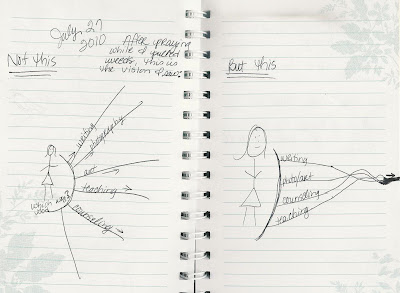 July 27
2010
After praying
while I pulled
weeds, this is
the vision I saw:
Not this
writing
photography
art
teaching
counseling
which way?
But this
writing
photo/art
counseling
teaching